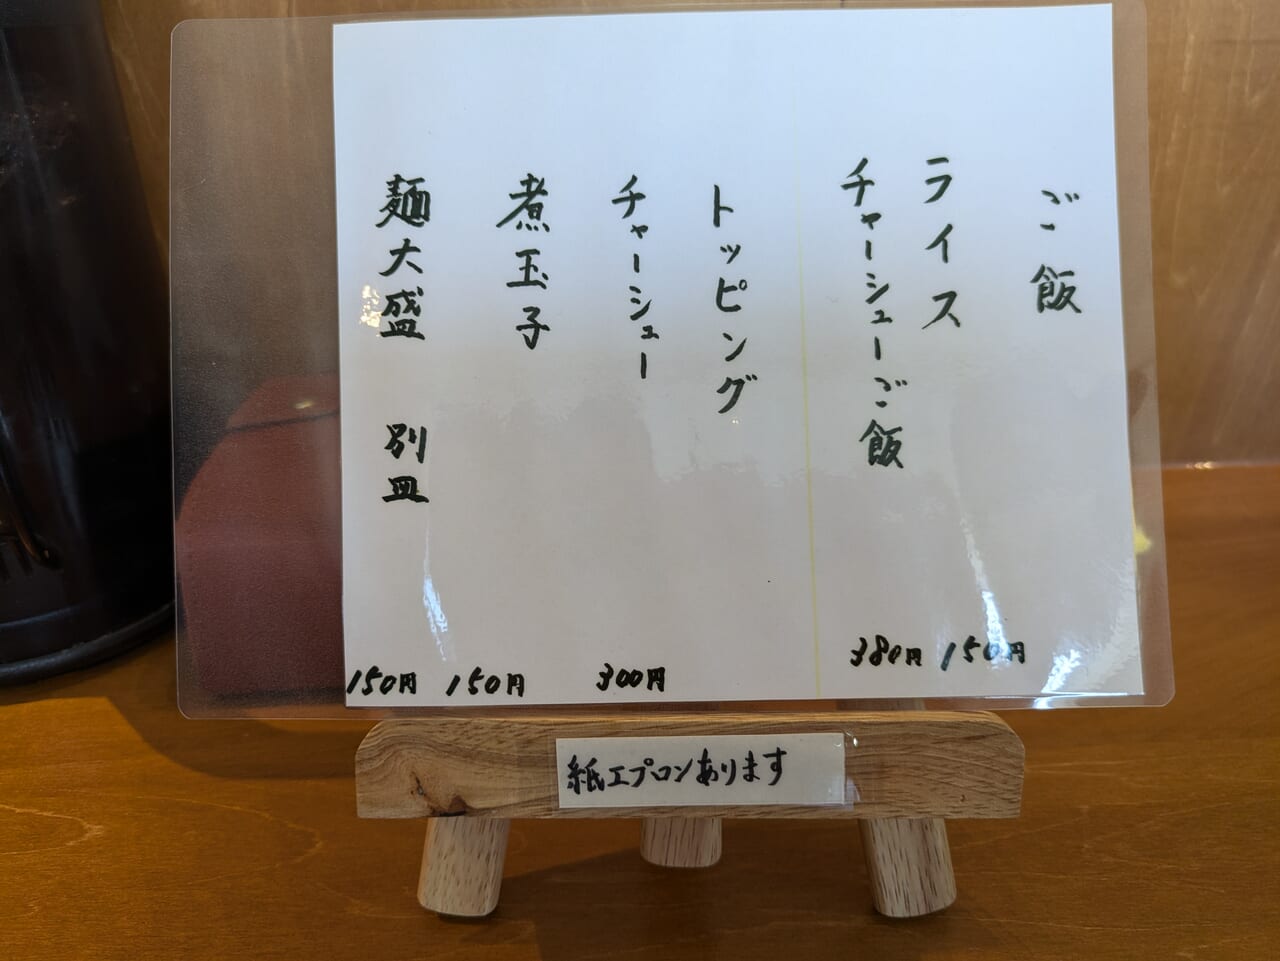 ご飯
ライス 150円
チャーシューご飯 380円
トッピング
チャーシュー 300円
煮玉子 150円
麺大盛 別皿 150円
紙エプロンあります